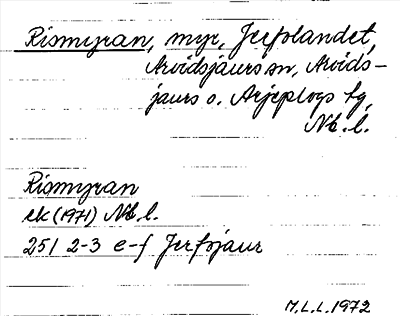 Rismyran, myr, Jerfolandet,
Arvidsjaurs sn, Arvids-
jaurs o. Arjeplogs tg,
Nb.l.
Rismyran
ek (1971) Nb.l.
251 2-3 e-f Jerfojaur
M.L.L. 1972